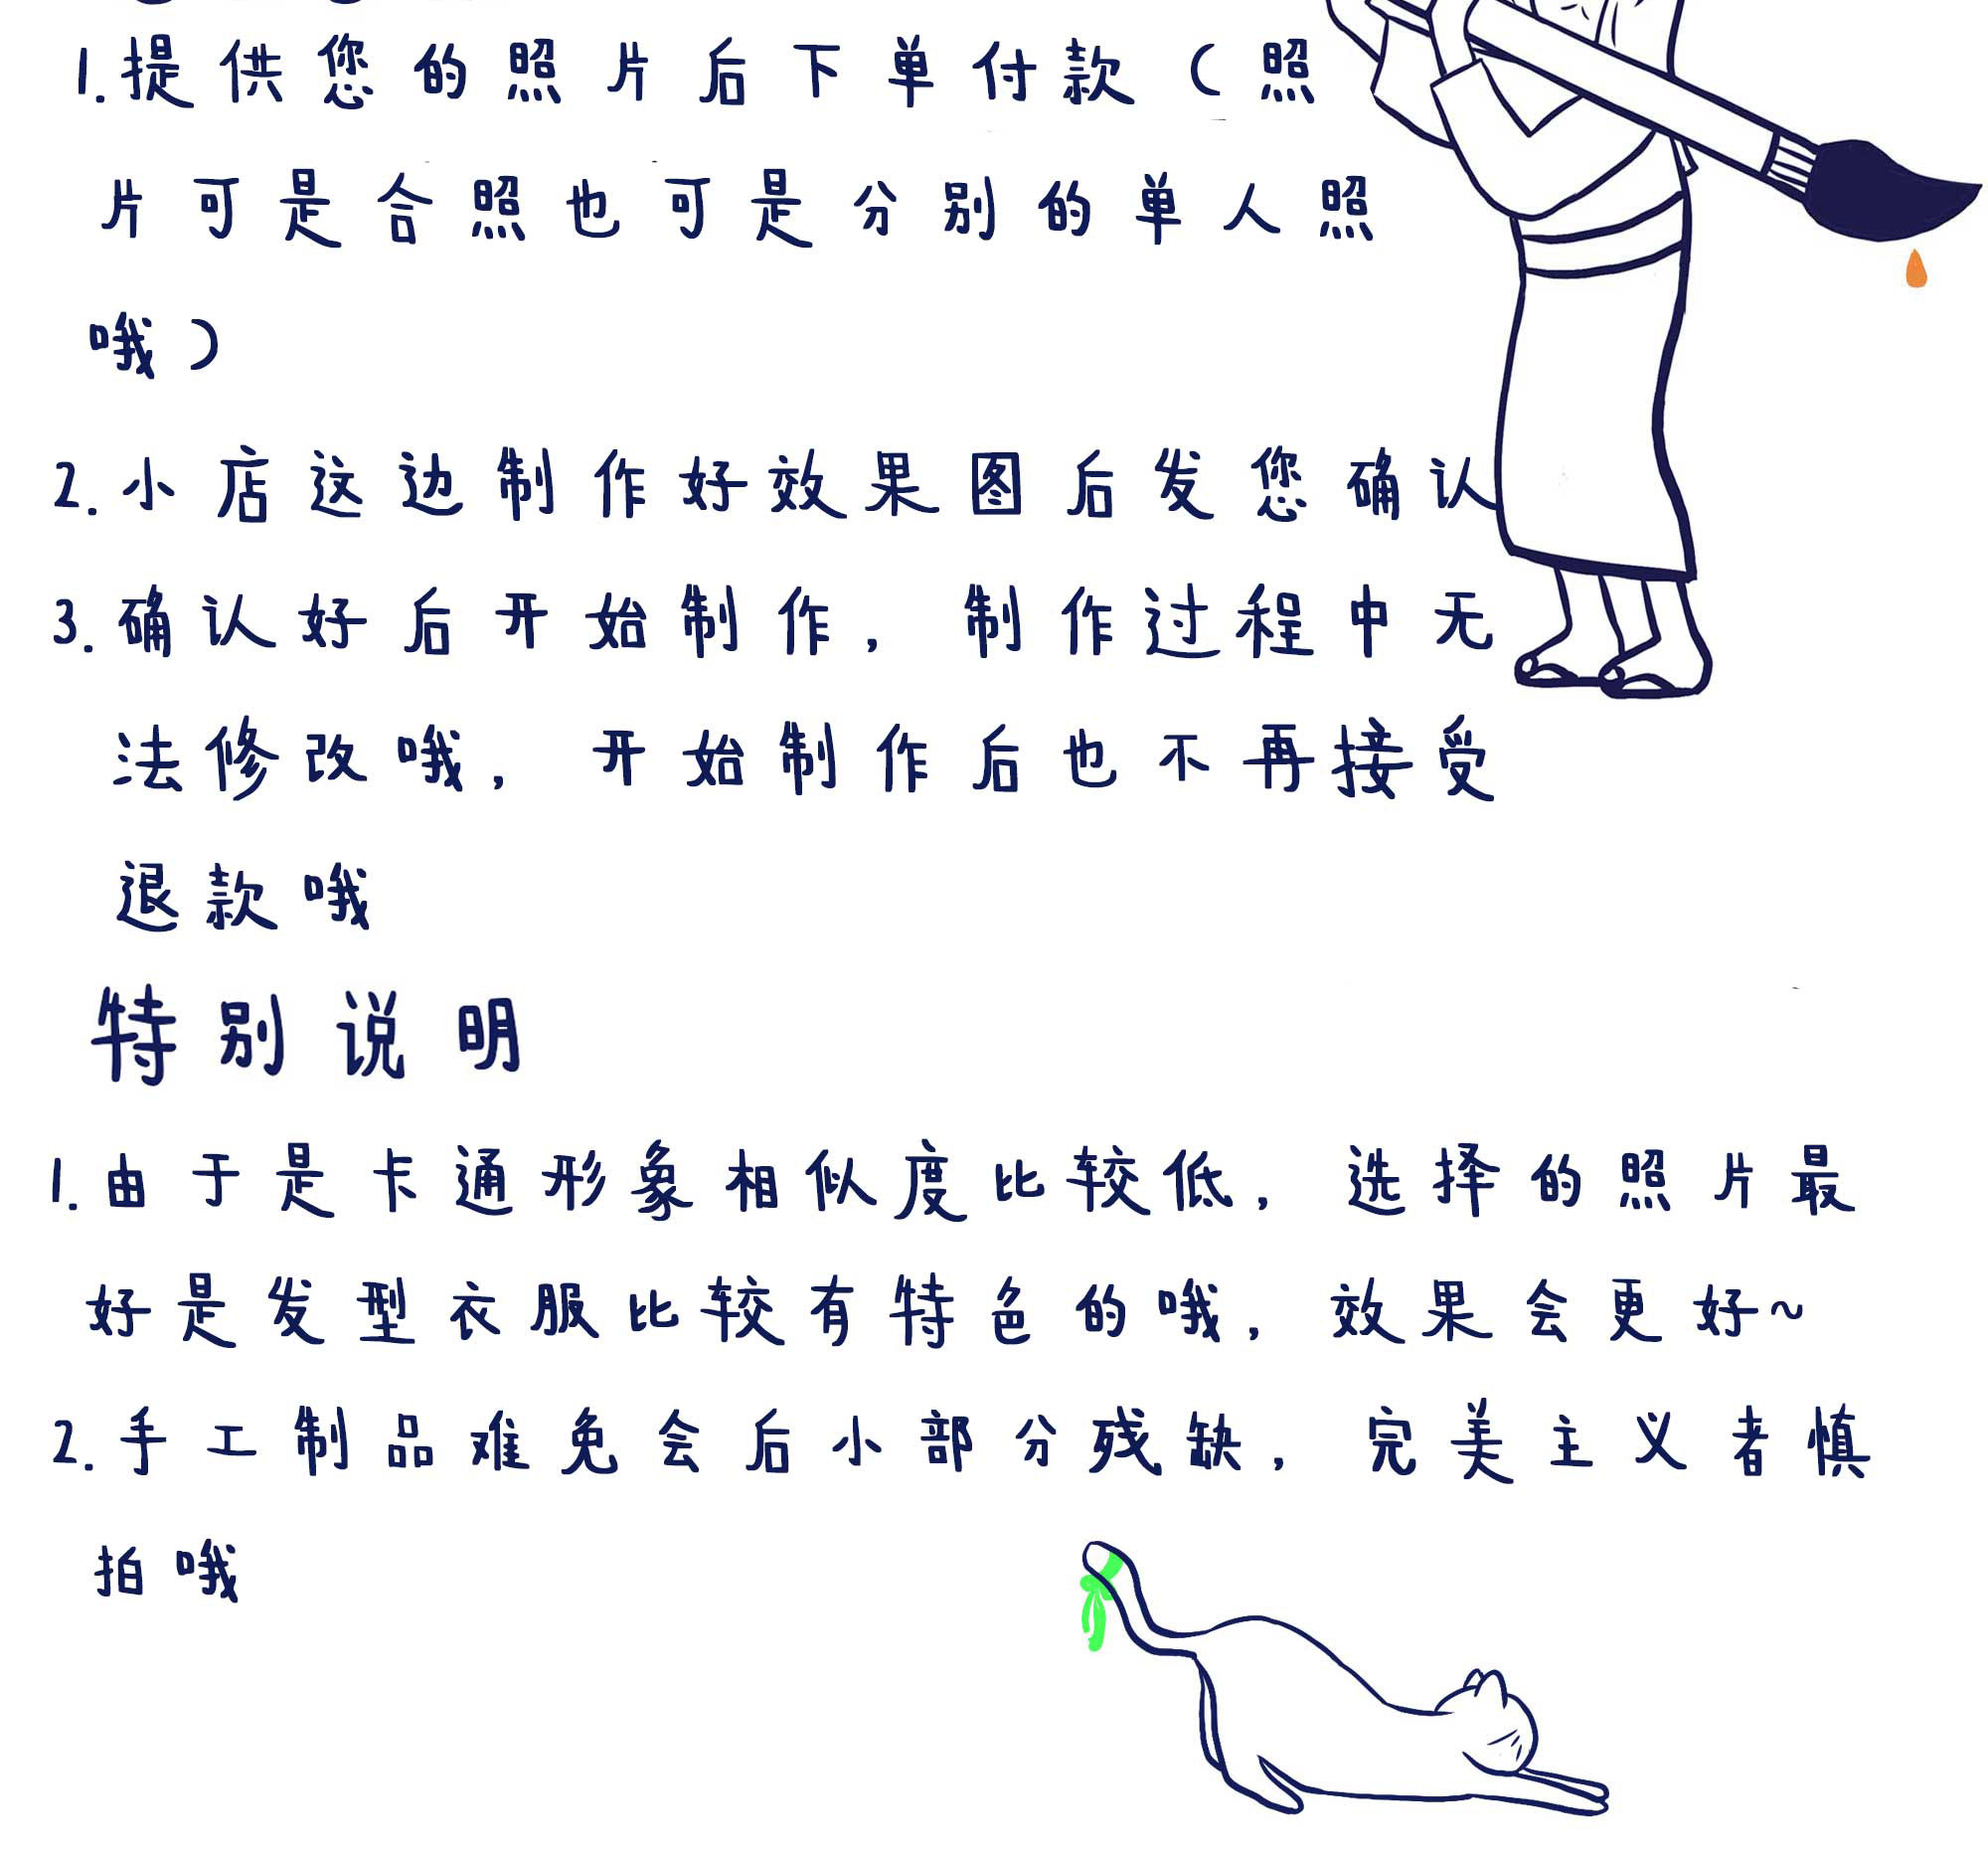 1.提供您的照片后下单付款（照
片可是合照也可是分别的单人照
哦）
2.小店这边制作好效果图后发您确认
3.确认好后开始制作，制作过程中无
法修改哦，开始制作后也不再接受
退款哦
特别说明
1.由于是卡通形象相似度比较低，选择的照片最
好是发型衣服比较有特色的哦，效果会更好~
2.手工制品难免会后小部分残缺，完美主义者慎
拍哦